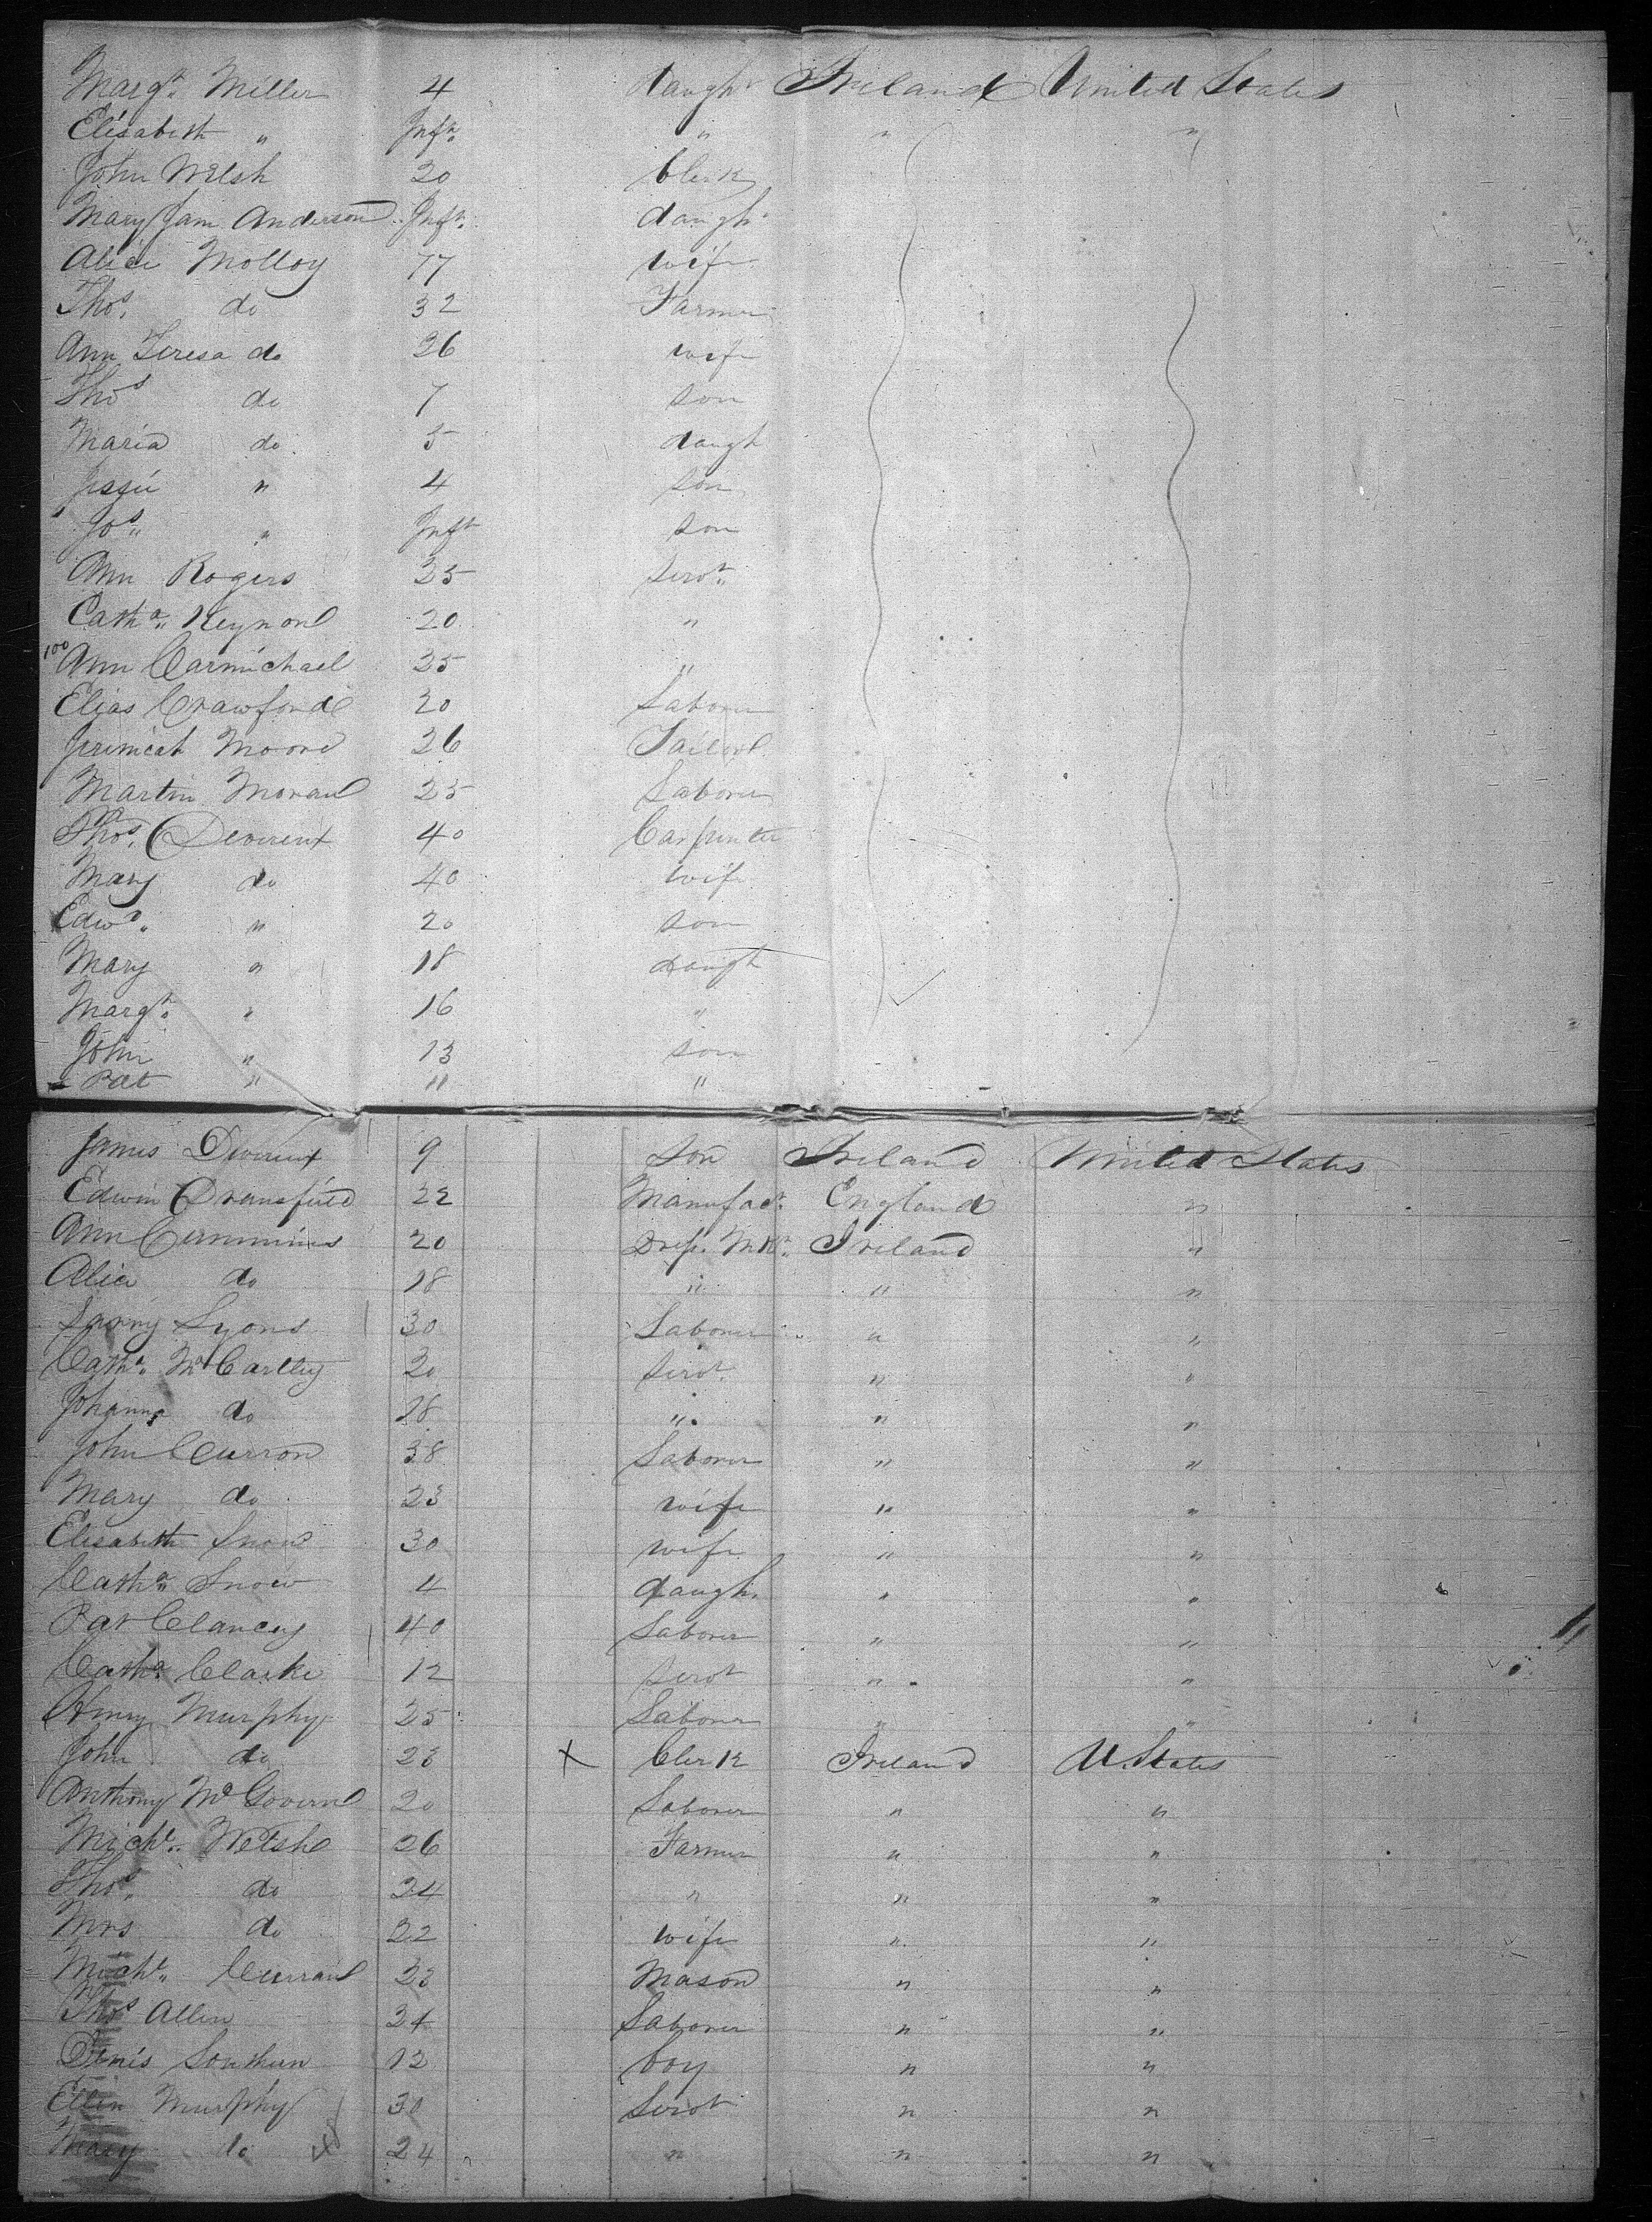 Margt. Miller 4 daughr Ireland United States
Elisabeth " Inft. " " "
John Welsh 20 Clerk
Mary Jane Anderson Inft. daughr
Alice Molloy 77 wife
Thos. do 32 Farmer
Ann Teresa do 26 wife
Thos do 7 son
Maria do 5 daugh
Jessie " 4 son
Jos " Inft son
Ann Rogers 25 Servt.
Catha. 20 "
100 Ann Carmichael 25 "
Elias Crawford 20 Laborer
Jeremiah Moore 26 Tailor
Martin Moran 25 Laborer
Thos. Devereux 40 Carpenter
Mary do 40 wife
Edwd. " 20 son
Mary " 18 daugh
Margt. " 16 "
John " 13 son
Pat " 11 "
James Devereux 9 Son Ireland United States
Edwin Dransfield 22 Manufact. England "
Ann Cummins 20 Dress Mkr. Ireland "
Alice do 18 " " "
Lyons 30 Laborer " "
Catha. McCarthy 20 Servt. " "
Johanna do 28 " " "
John Curron 38 Laborer " "
Mary do 23 wife " "
Elisabeth Snow 30 wife " "
Catha. Snow 4 daugh. " "
Pat Clancey 40 Laborer " "
Catha. Clarke 12 Servt " "
Henry Murphy 25 Laborer " "
John do 23 X Clerk Ireland U. States
Anthony McGovern 20 Laborer " "
Michl. Welsh 26 Farmer " "
Thos. do 24 " " "
Mrs do 22 wife " "
Michl. Curran 23 Mason " "
Thos Allen 24 Laborer " "
Denis 12 boy " "
Ellen Murphy 30 Servt " "
Mary do 24 " " "